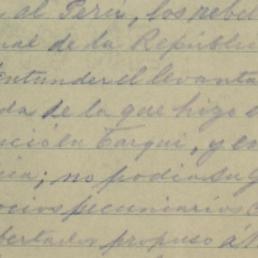 al Perú, los rebel
de la Repúblic
entender el levanta
da de la que hizo
Tarqui, y
no podia su
ocios pecuniarios
propuso á